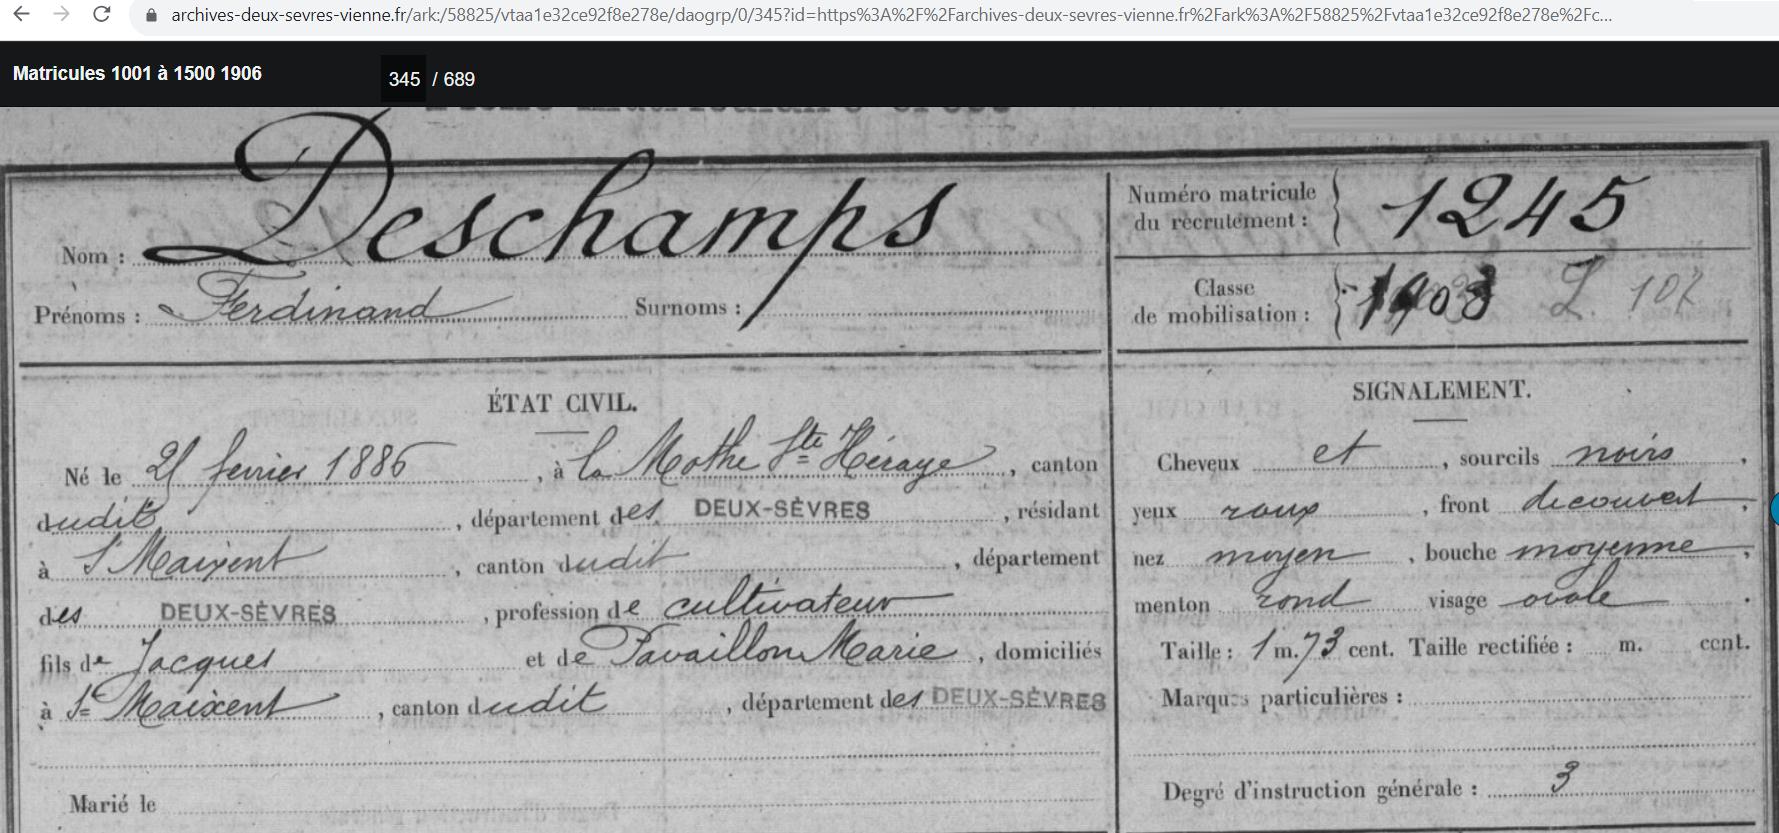 archives-deux-sevres-vienne.fr/ark:/58825/vtaa1e32ce92f8e278e/daogrp/0/345?id=https%3A%2F%2Farchives-deux-sevres-vienne.fr%2Fark%3A%2F58825%2Fvtaa1e32ce92f8e278e%2Fc...
Matricules 1001 à 1500 1906 345 / 689
Nom : Deschamps
Prénoms : Ferdinand Surnoms :
Numéro matricule
du recrutement : 1245
Classe
de mobilisation : 1903
ÉTAT CIVIL.
Né le février 1886, à la Mothe Ste Héraye, canton
dudit, département des DEUX-SÈVRES, résidant
à St Maixent, canton dudit, département
des DEUX-SÈVRES, profession de cultivateur
fils de Jacques et de Pavaillon Marie, domiciliés
à St Maixent, canton dudit, département des DEUX-SÈVRES
Marié le
SIGNALEMENT.
Cheveux et, sourcils noirs,
yeux roux, front découvert,
nez moyen, bouche moyenne,
menton rond visage ovale.
Taille : 1 m. 73 cent. Taille rectifiée : m. cent.
Marques particulières :
Degré d'instruction générale : 3